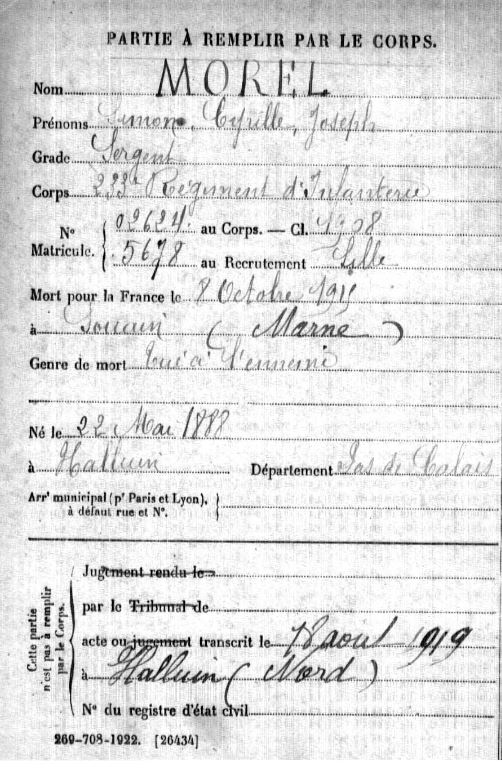 PARTIE À REMPLIR PAR LE CORPS.
Nom MOREL
Prénoms Simon, Cyrille, Joseph
Grade Sergent
Corps 233e Régiment d'Infanterie
N° Matricule. 02624 au Corps. — Cl. 1908
5678 au Recrutement Lille
Mort pour la France le 8 Octobre 1915
à Souain (Marne)
Genre de mort tué à l'ennemi
Né le 22 Mai 1888
à Halluin Département Pas de Calais
Arrt municipal (pr Paris et Lyon),
à défaut rue et N°.
Cette partie n'est pas à remplir par le Corps.
Jugement rendu le
par le Tribunal de
acte ou jugement transcrit le 18 aout 1919
à Halluin (Nord)
N° du registre d'état civil
269-708-1922. [26434]